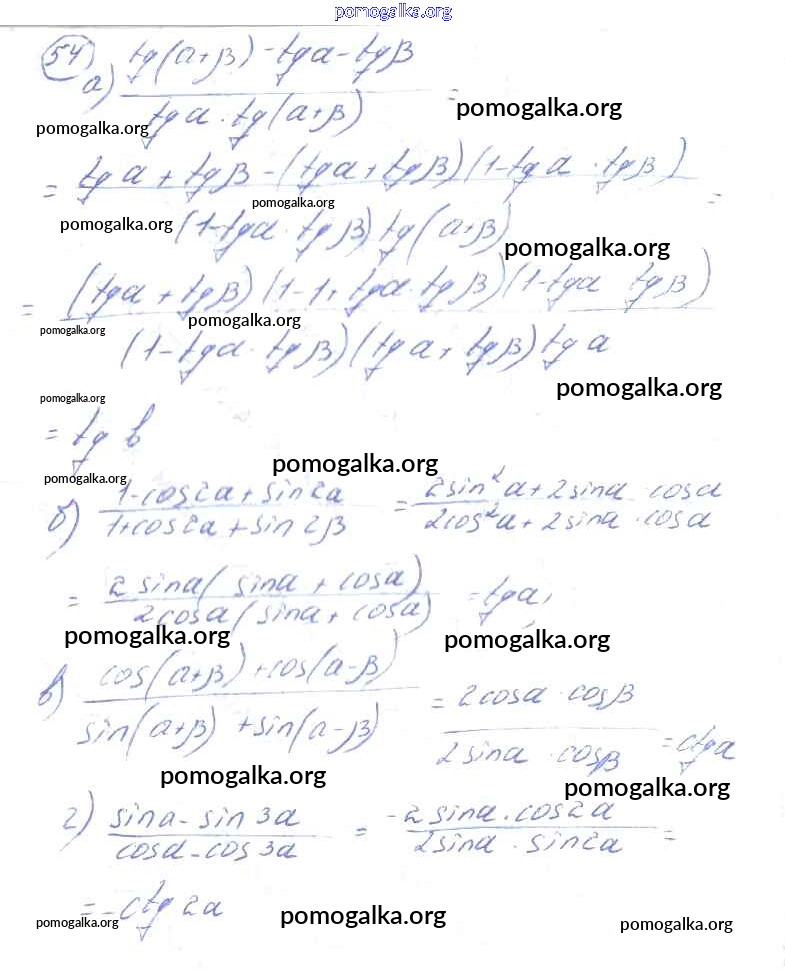 pomogalka.org
54 а) (tg(α+β) - tgα - tgβ) / (tgα · tg(α+β)) =
pomogalka.org
pomogalka.org
= (tgα + tgβ - (tgα + tgβ)(1 - tgα · tgβ)) / ((1 - tgα · tgβ) tg(α+β)) =
pomogalka.org
pomogalka.org
pomogalka.org
= ((tgα + tgβ)(1 - 1 + tgα · tgβ)(1 - tgα tgβ)) / ((1 - tgα · tgβ)(tgα + tgβ) tgα
pomogalka.org
pomogalka.org
pomogalka.org
pomogalka.org
= tg β
pomogalka.org
pomogalka.org
б) (1 - cos2α + sin2α) / (1 + cos2α + sin2β) = (2sin²α + 2sinα · cosα) / (2cos²α + 2sinα · cosα)
= (2sinα(sinα + cosα)) / (2cosα(sinα + cosα)) = tgα;
pomogalka.org
pomogalka.org
в) (cos(α+β) + cos(α-β)) / (sin(α+β) + sin(α-β)) = (2cosα · cosβ) / (2sinα · cosβ) = ctgα
pomogalka.org
pomogalka.org
г) (sinα - sin3α) / (cosα - cos3α) = (-2sinα · cos2α) / (2sinα · sin2α) =
= -ctg2α
pomogalka.org
pomogalka.org
pomogalka.org